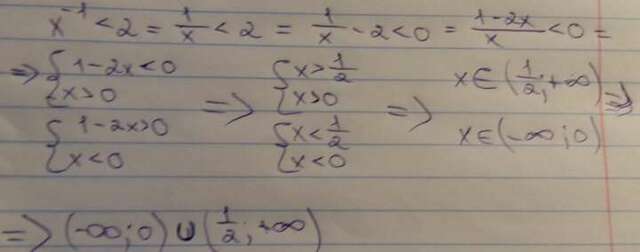 x⁻¹ < 2 = 1/x < 2 = 1/x - 2 < 0 = (1-2x)/x < 0 =
=> { 1-2x < 0 { x > 1/2 x ∈ (1/2; +∞)
{ x > 0 => { x > 0 => =>
{ 1-2x > 0 { x < 1/2 x ∈ (-∞; 0)
{ x < 0 { x < 0
=> (-∞; 0) ∪ (1/2; +∞)